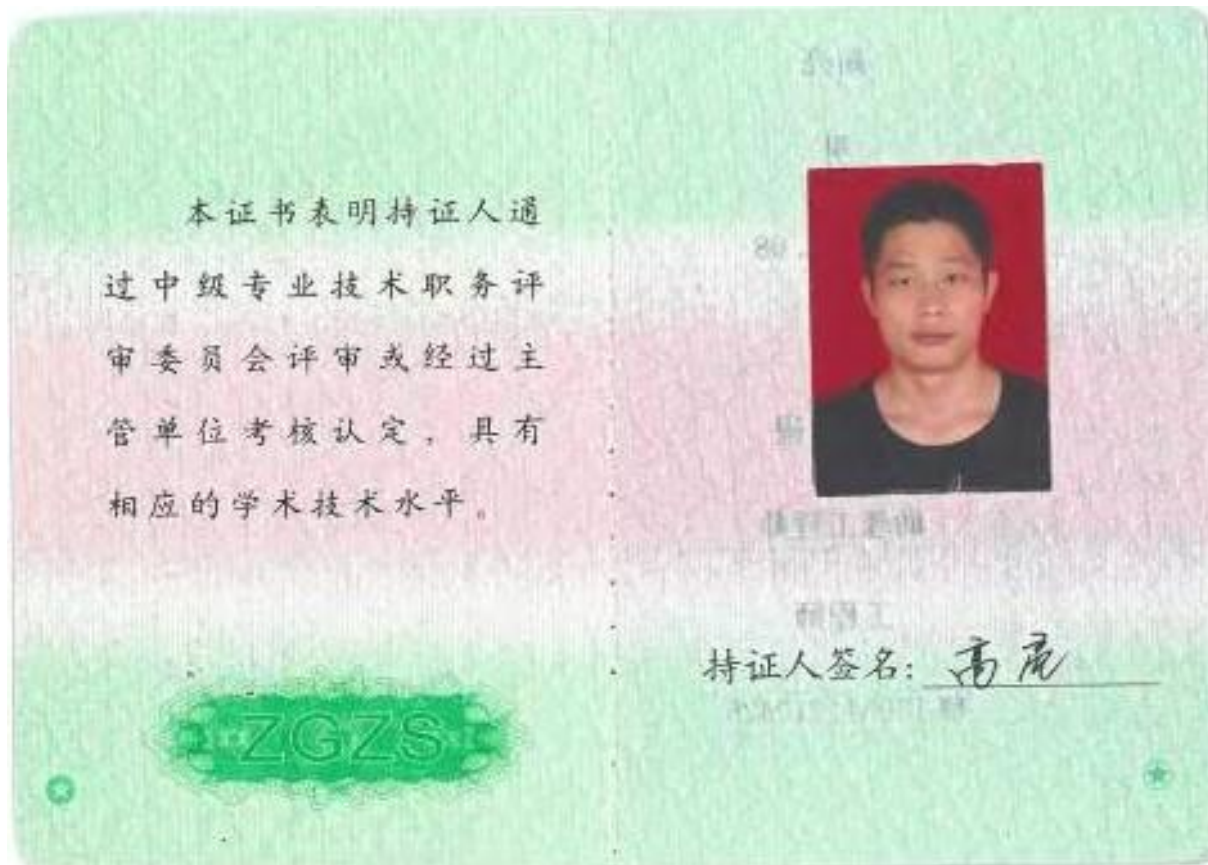 本证书表明持证人通
过中级专业技术职务评
审委员会评审或经过主
管单位考核认定，具有
相应的学术技术水平。
ZGZS
持证人签名：高亮
工程师